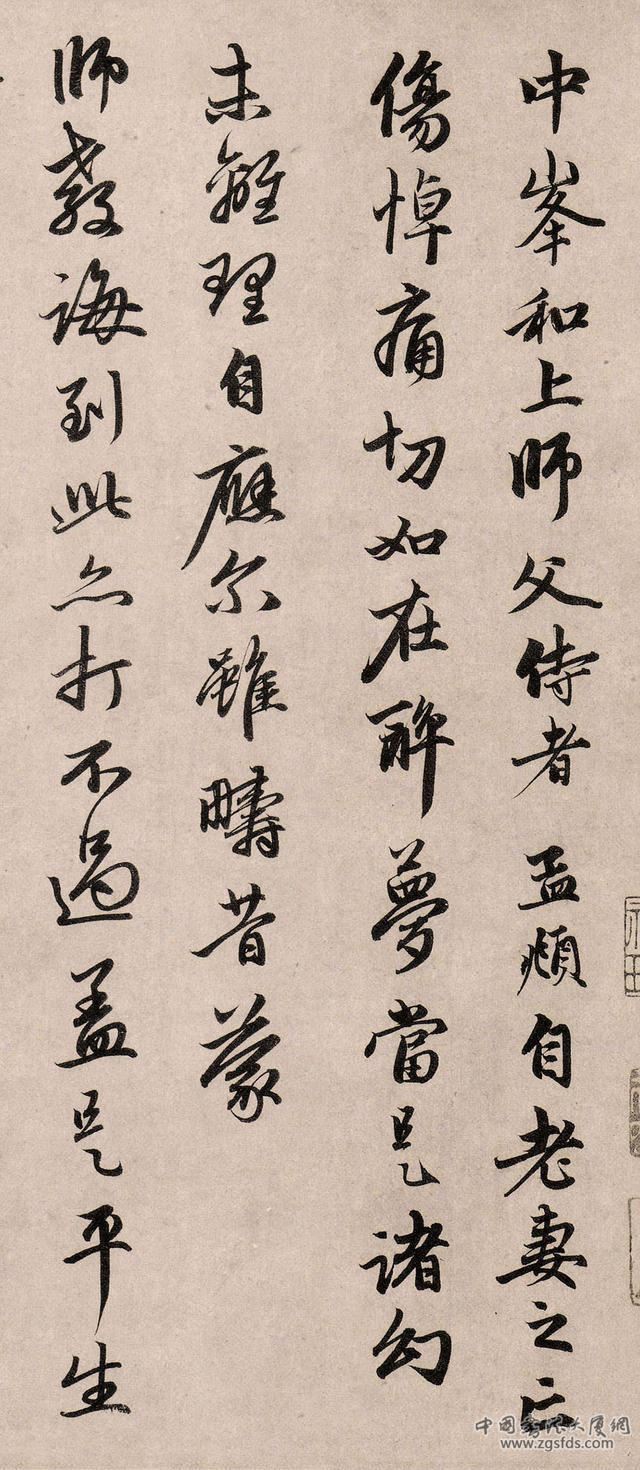 中峯和上師父侍者 孟頫自老妻之亡
傷悼痛切如在醉夢當是諸幻
未離理自應尔雖疇昔蒙
師教誨到此亦打不過盖是平生
www.zgsfds.com